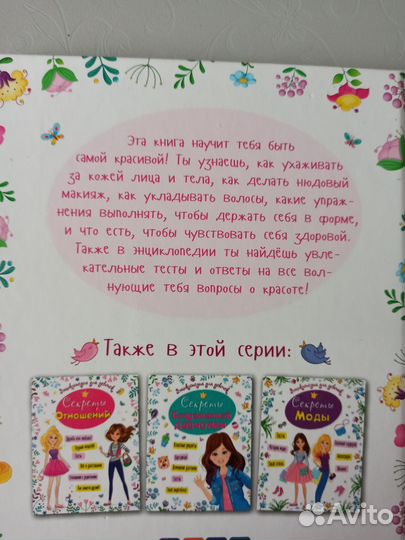 Эта книга научит тебя быть
самой красивой! Ты узнаешь, как ухаживать
за кожей лица и тела, как делать нюдовый
макияж, как укладывать волосы, какие упраж-
нения выполнять, чтобы держать себя в форме,
и что есть, чтобы чувствовать себя здоровой.
Также в энциклопедии ты найдёшь увле-
кательные тесты и ответы на все вол-
нующие тебя вопросы о красоте!
Также в этой серии:
Энциклопедия для девочек
Секреты
Отношений
Энциклопедия для девочек
Секреты
Энциклопедия для девочек
Секреты
Моды
Avito